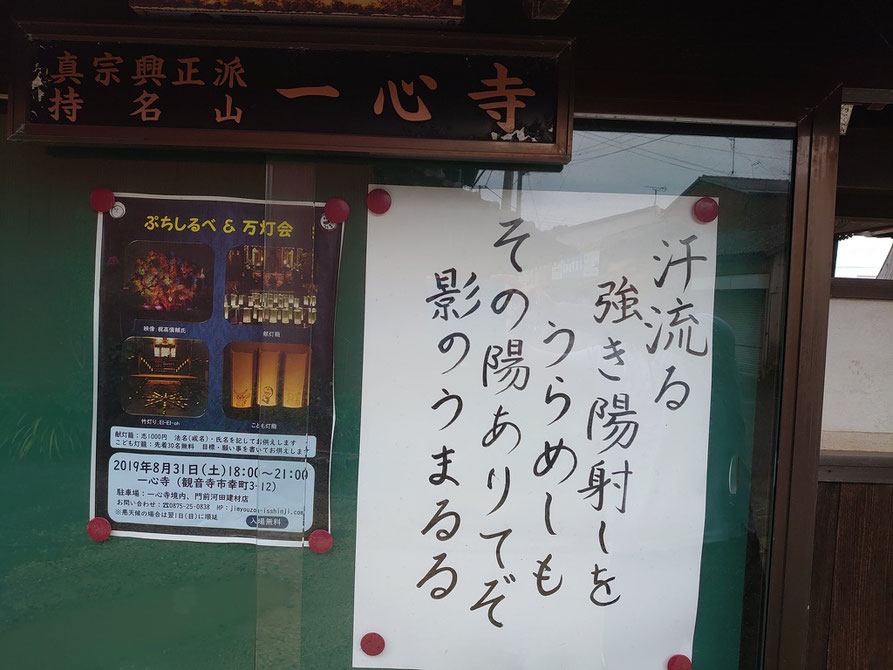 真宗興正派
持名山
一心寺
ぷちしるべ & 万灯会
映像 梶高慎輔氏
献灯籠
竹灯り:EI-EI-oh
こども灯籠
献灯籠:志1000円 法名(戒名)・氏名を記してお供えします
こども灯籠:先着30名無料 目標・願い事を書いてお供えします
2019年8月31日(土)18:00~21:00
一心寺(観音寺市幸町3-12)
駐車場:一心寺境内、門前河田建材店
お問い合わせ:☎0875-25-0838 HP:jimyouzan-isshinji.com
※悪天候の場合は翌1日(日)に順延
入場無料
汗流る
強き陽射しを
うらめしも
その陽ありてぞ
影のうまるる